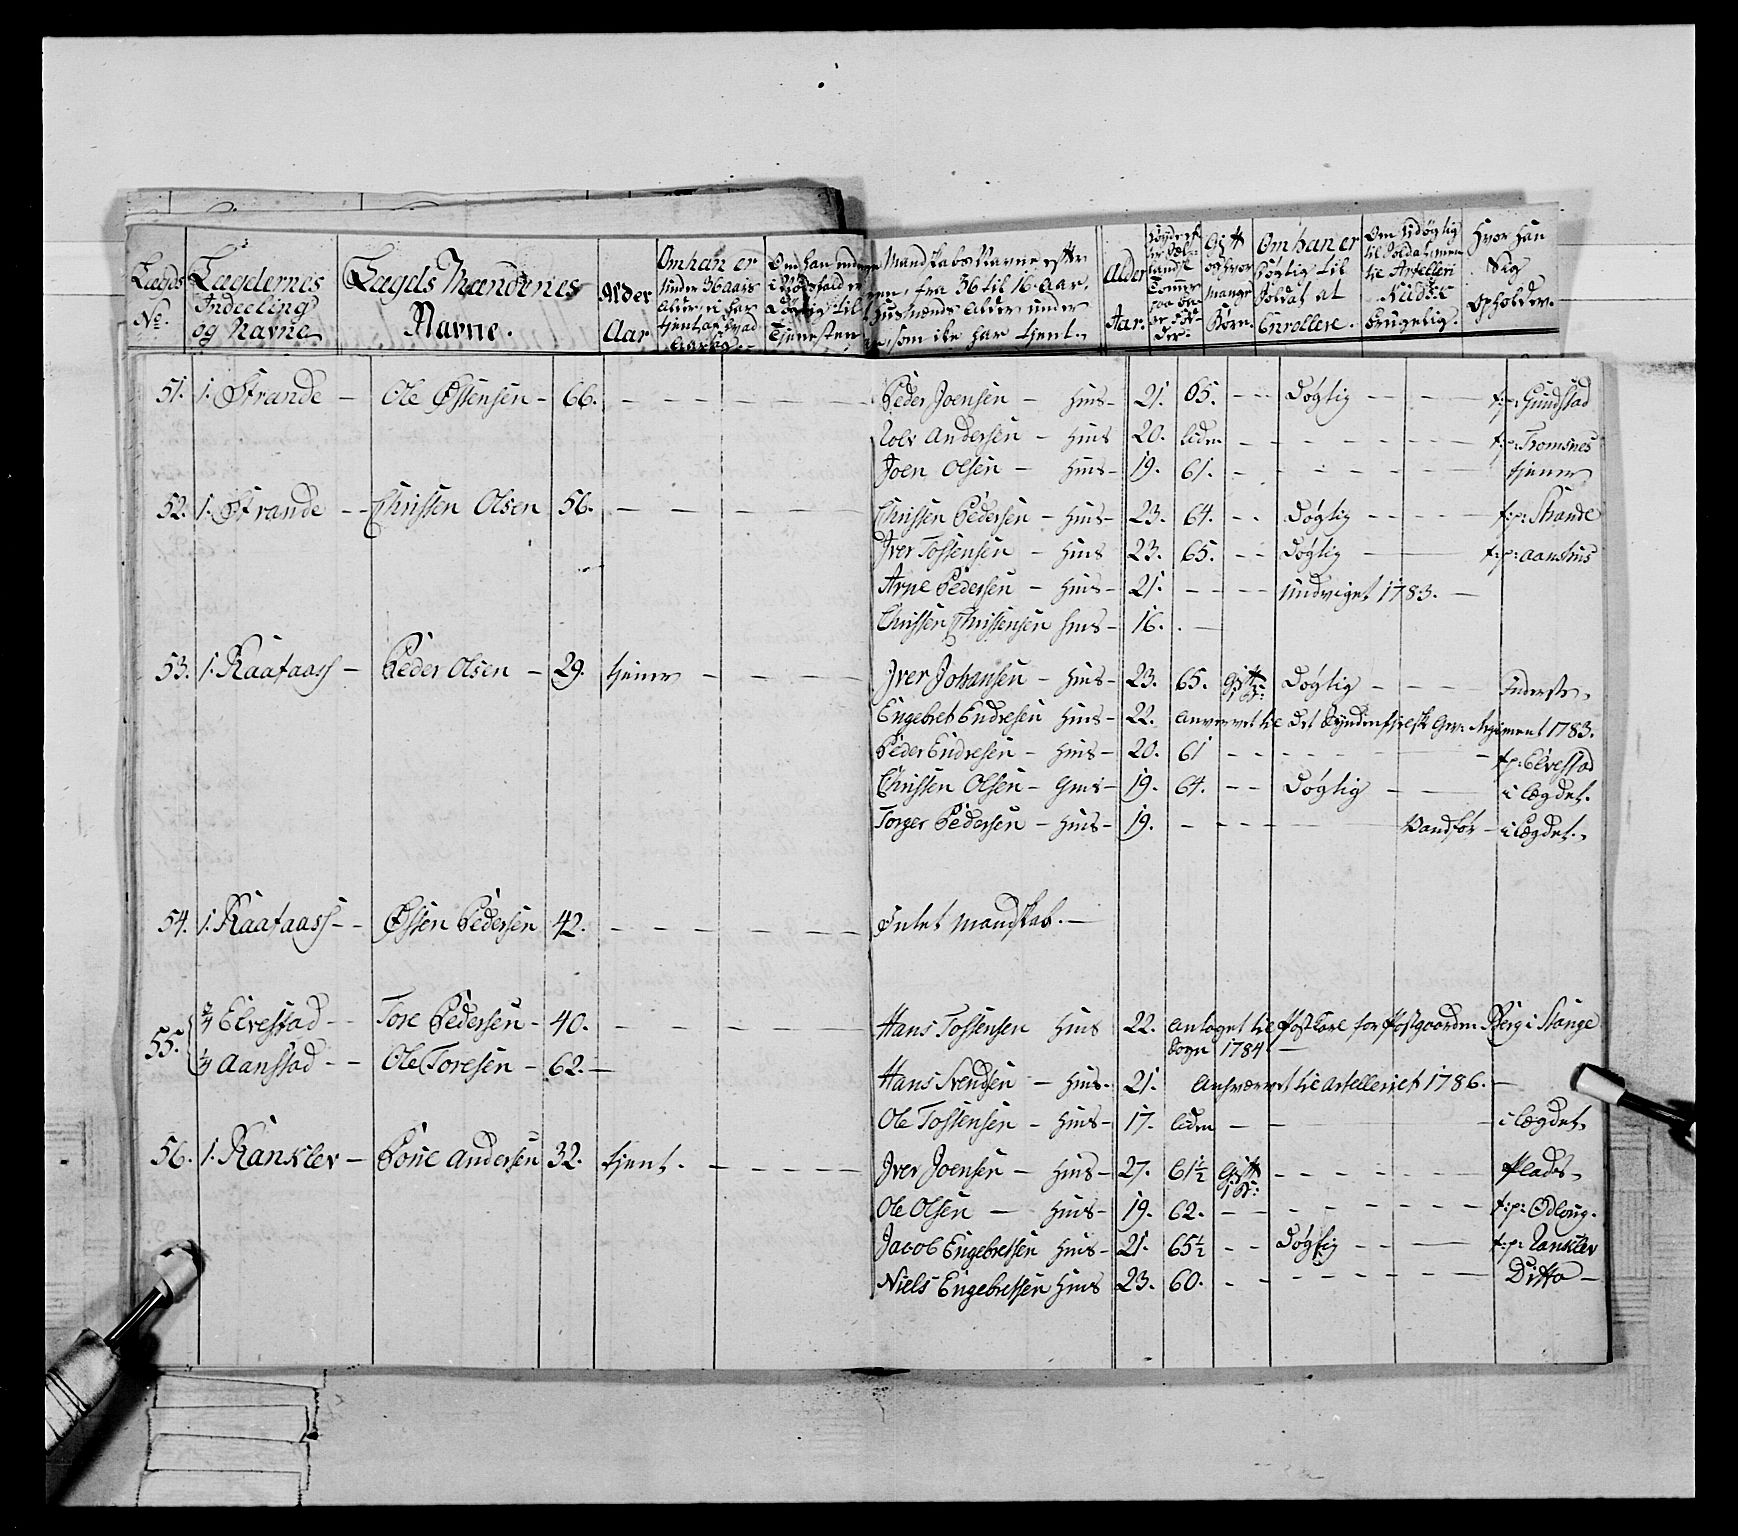 Lægds No.
Lægdernes Indeeling og Navne
Lægds Mændenes Navne.
Alder Aar
Om han er under 36 Aars Alder, i har tjent af hvad
Om han endnu i Nødsfald er Døgtig til Tjenesten
Mandskabs Navne efter fra 36 til 16 Aar, Husmænds Alder, under som ike har tjent.
Alder Aar.
Gift og hvor mange Børn.
Om han er Døgtig til Soldat at Enrollere.
Om Udøgtig til Soldat, men til Artelleri Brugelig.
Hvor han Sig opholder.
51. 1. Strande — Ole Østensen — 66. — Peder Joensen — Huus — 21. 65. — Døgtig — t: p: Gundstad
Rolv Andersen — Huus 20. liden — t: p: Tromsnes
Joen Olsen — Huus — 19. 61. — tjener
52. 1. Strande — Christen Olsen 56. — Christen Pedersen — Huus — 23. 64. — Døgtig — t: p: Strande
Iver Tostensen — Huus 23. 65. — Døgtig — t: p: Aanstuus
Arne Pedersen — Huus — 21. — Undviget 1783. —
Christen Christensen Huus — 16. —
53. 1. Kaataass — Peder Olsen — 29. tjener — Iver Johansen — Huus — 23. 65. Gift 1 B: Døgtig — Inderste
Engebret Endresen Huus — 22. Anvervet til Det Syndenfjelske Gev: Regiment 1783.
Peder Endresen — Huus — 20. 61 — t: p: Elvestad
Christen Olsen — Huus — 19. 64. — Døgtig — i Lægdet.
Torger Pedersen — Huus — 19. — Vandfør — i Lægdet.
54. 1. Kaataass — Østen Pedersen 42. — Intet Mandskab. —
55. 3/4 Elvestad — Tore Pedersen — 40. — Hans Tostensen Huus 22. Antaget til Postkarl for Postgaarden Berg i Stange
Sogn 1784 —
1/4 Aanstad — Ole Toresen — 62. — Hans Svendsen — Huus. 21. Anhværvet til Artelleriet 1786. —
Ole Tostensen — Huus — 17. liden — i Lægdet.
56. 1. Ranklev — Poue Andersen 32. tjent. — Iver Joensen — Huus — 27. 61 1/2 Gift 1 B: — Plads
Ole Olsen — Huus — 19. 62. — t: p: Odloug.
Jacob Engebretsen Huus — 21. 65 1/2 — Døgtig — t: p: Ranklev
Niels Engebretsen Huus 23. 60. — Ditto —